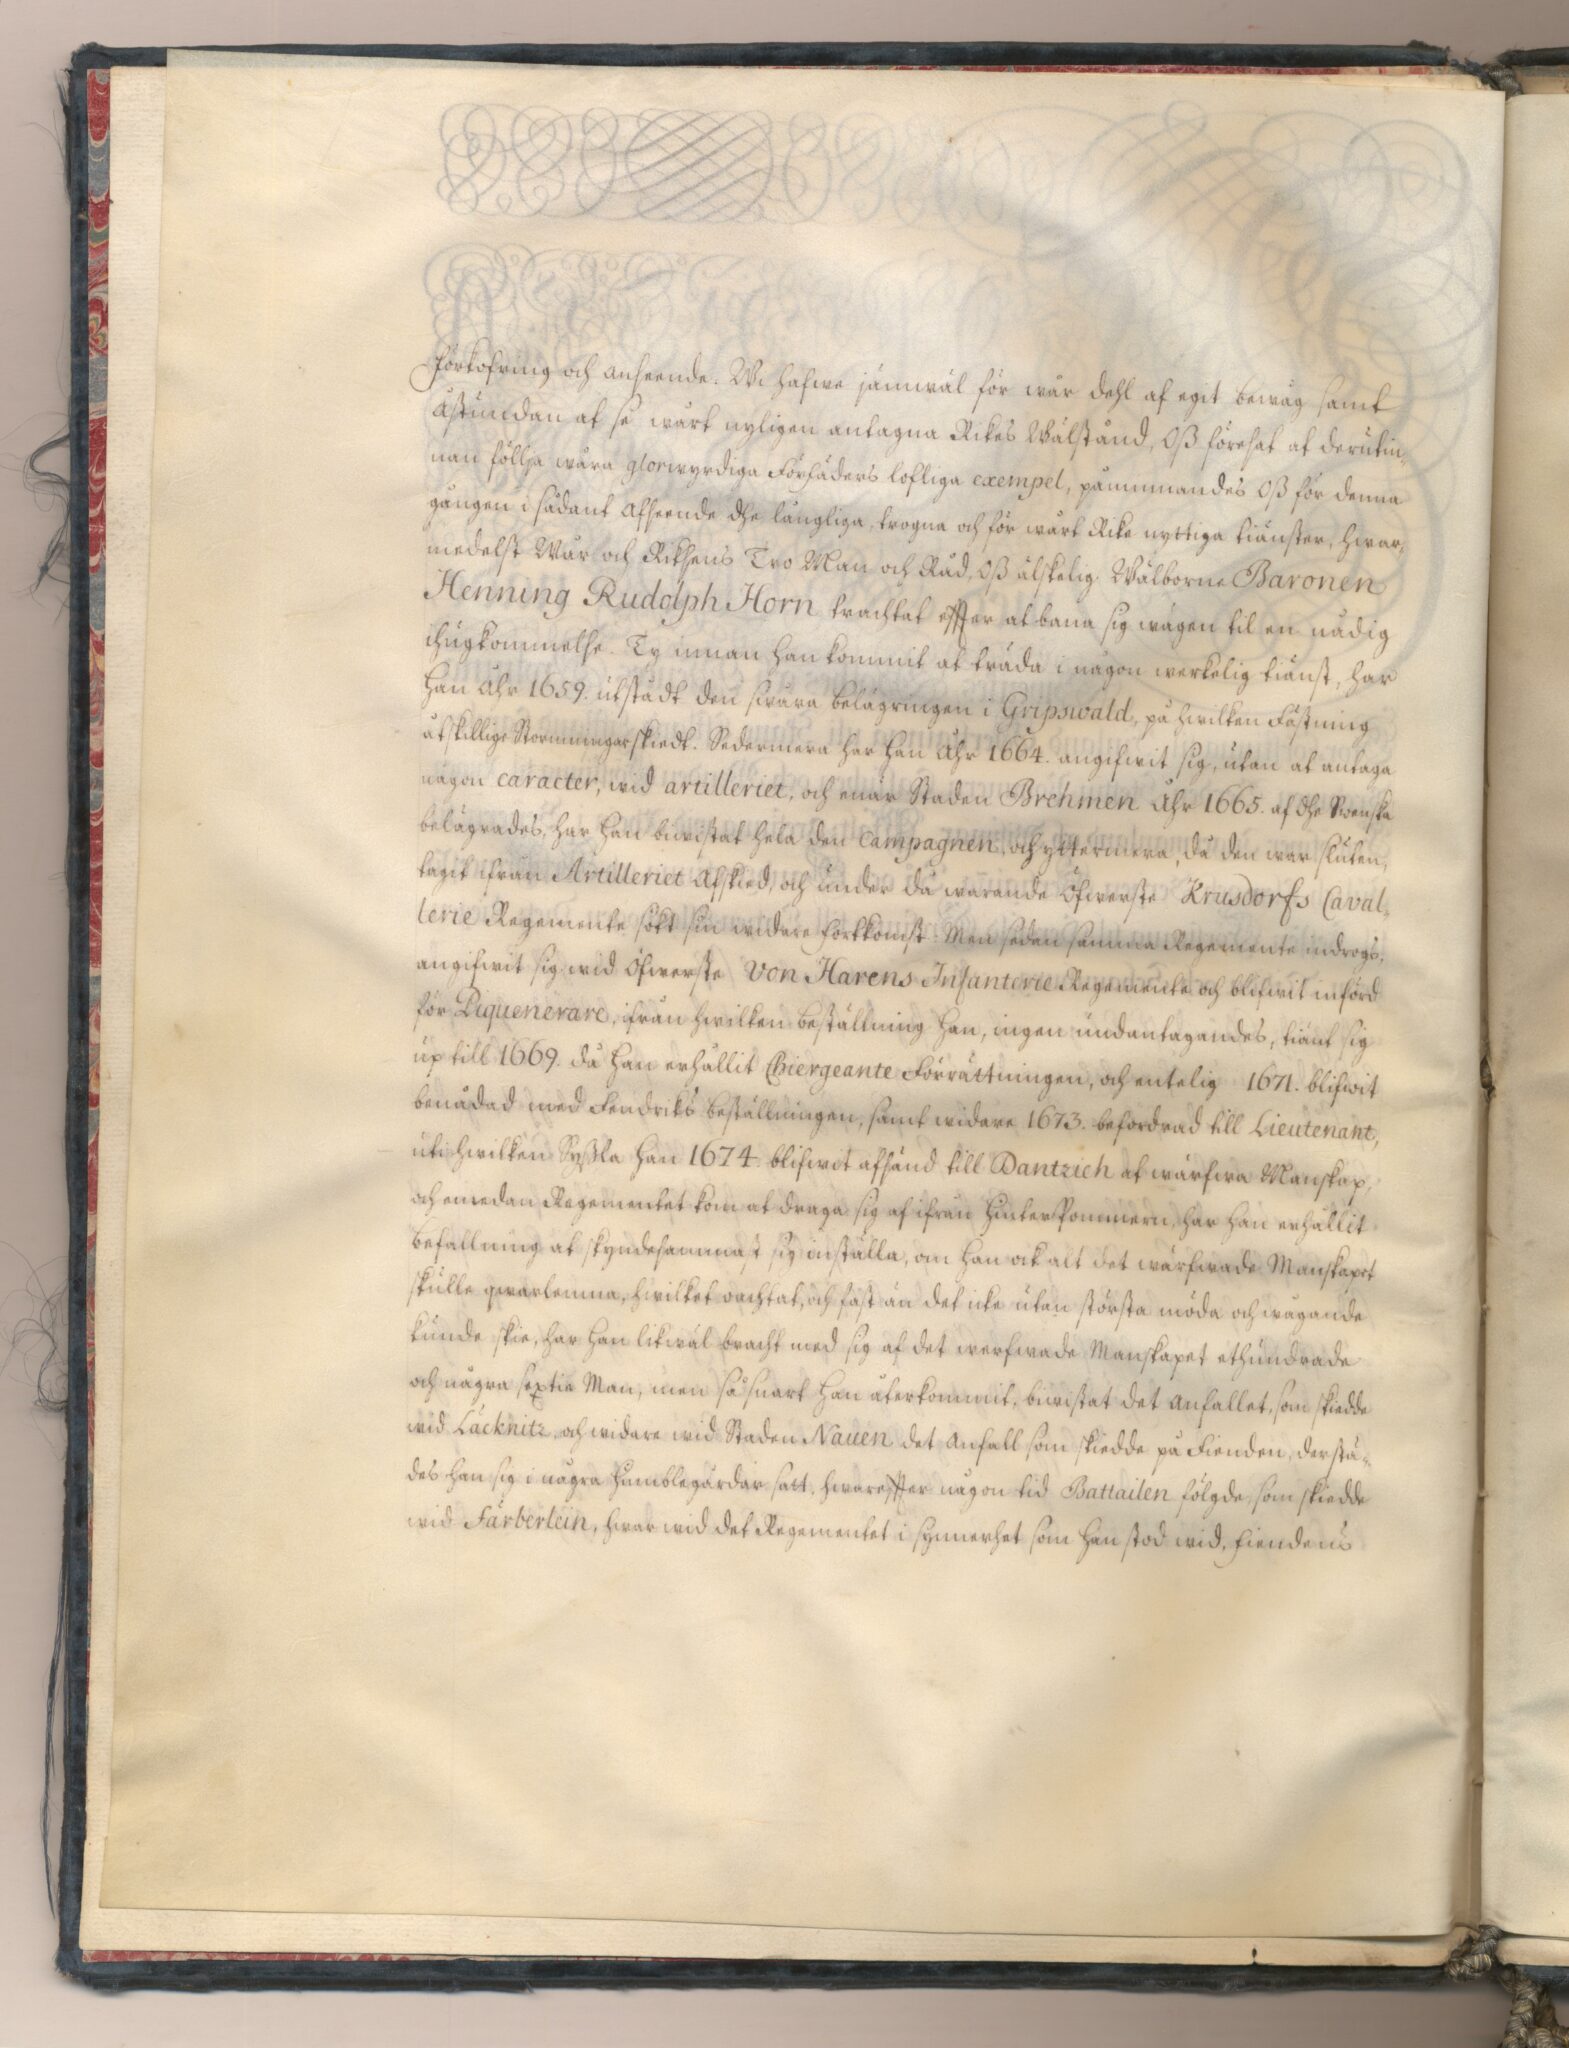 förkofring och anseende. Wi hafwe jämwäl för wår dehl af egit bewåg samt
åstundan at se wårt nyligen antagna Rikes Wälstånd, Oß föresat at derutin-
nan föllja wåra glorwyrdiga Förfäders lofliga exempel, påminnandes Oß för denna
gången i sådant Afseende dhe långliga, trogna och för wårt Rike nyttiga tiänster, hwar-
medelst Wår och Rikhens Tro Man och Råd, Oß älskelig Wälborne Baronen
Henning Rudolph Horn trachtat effter at bana sig wägen til en nådig
ihugkommelse. Ty innan han kommit at träda i någon werkelig tiänst, har
han Åhr 1659. utstådt den swåra belägringen i Gripswald, på hwilken Fästning
åtskillige Stormningar skiedt. Sedermera har han Åhr 1664. angifwit sig, utan at antaga
någon caracter, wid artilleriet, och enär Staden Brehmen Åhr 1665. af dhe Swenska
belägrades, har han biwistat hela den campagnen, och yttermera, då den war sluten,
tagit ifrån Artilleriet Afskied, och under då warande Öfwerste Krusdorfs Caval-
lerie Regemente sökt sin widare fortkomst. Men sedan samma Regemente indrogs,
angifwit sig wid Öfwerste von Harens Infanterie Regemente och blifwit införd
för Piquenerare, ifrån hwilken beställning han, ingen undantagandes, tiänt sig
up till 1669. då han erhållit Chiergeante Förrättningen, och entelig 1671. blifwit
benådad med Fendriks beställningen, samt widare 1673. befordrad till Lieutenant,
uti hwilken Syßla han 1674 blifwit afsänd till Dantzich at wärfwa Manskap,
och emedan Regementet kom at draga sig af ifrån HinterPommern, har han erhållit
befallning at skyndesammast sig inställa, om han ock alt det wärfwade Manskapet
skulle qwarlemna, hwilket oachtat, och fast än det icke utan största möda och wågande
kunde skie, har han likwäl bracht med sig af det werfwade Manskapet ethundrade
och några sextie Man, men så snart han återkommit, biwistat det Anfallet, som skiedde
wid Läcknitz, och widare wid Staden Nauen det Anfall som skiedde på Fienden, derstä-
des han sig i några humblegårdar satt, hwareffter någon tid Battailen fölgde, som skiedde
wid Färberlein, hwar wid det Regementet i synnerhet som han stod wid, Fiendens